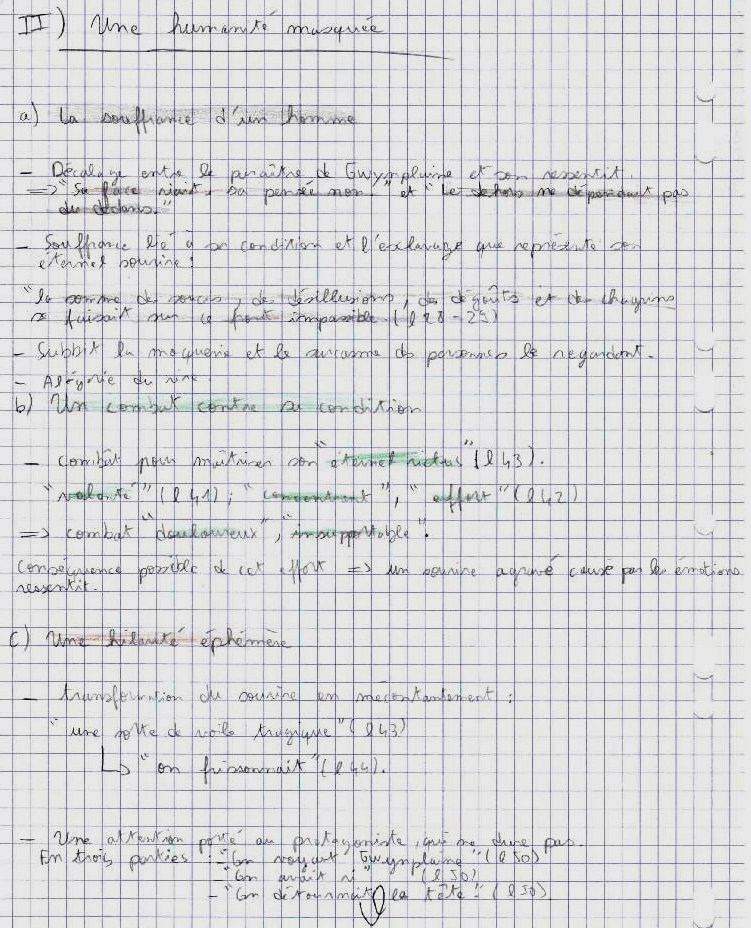 II) Une humanité masquée
a) La souffrance d'un homme
- Décalage entre le paraître de Gwynplaine et son ressentit.
=> "Sa face riait, sa pensée non" et "Le dehors ne dépendait pas
du dedans."
- Souffrance lié à sa condition et l'esclavage que représente son
éternel sourire :
"la somme des soucis, des désillusions, des dégoûts et des chagrins
se faisait sur ce front impassible. (l 28-29)
- Subbit la moquerie et le sarcasme des personnes le regardant.
- Alégorie du rire.
b) Un combat contre sa condition
- combat pour maîtriser son "éternel rictus" (l 43).
"volonté" (l 41) ; "concentrant", "effort" (l 42)
=> combat "douloureux", "insupportable".
Conséquence possible de cet effort => un sourire agravé causé par les émotions
ressentit.
c) Une hilarité éphémère
- transformation du sourire en mécontantement :
"une sorte de voile tragique" (l 43)
"on frissonnait" (l 44).
- Une attention porté au protagoniste, qui ne dure pas.
En trois parties : - "On voyait Gwynplaine" (l 50)
- "On avait ri" (l 50)
- "On détournait la tête" (l 50)